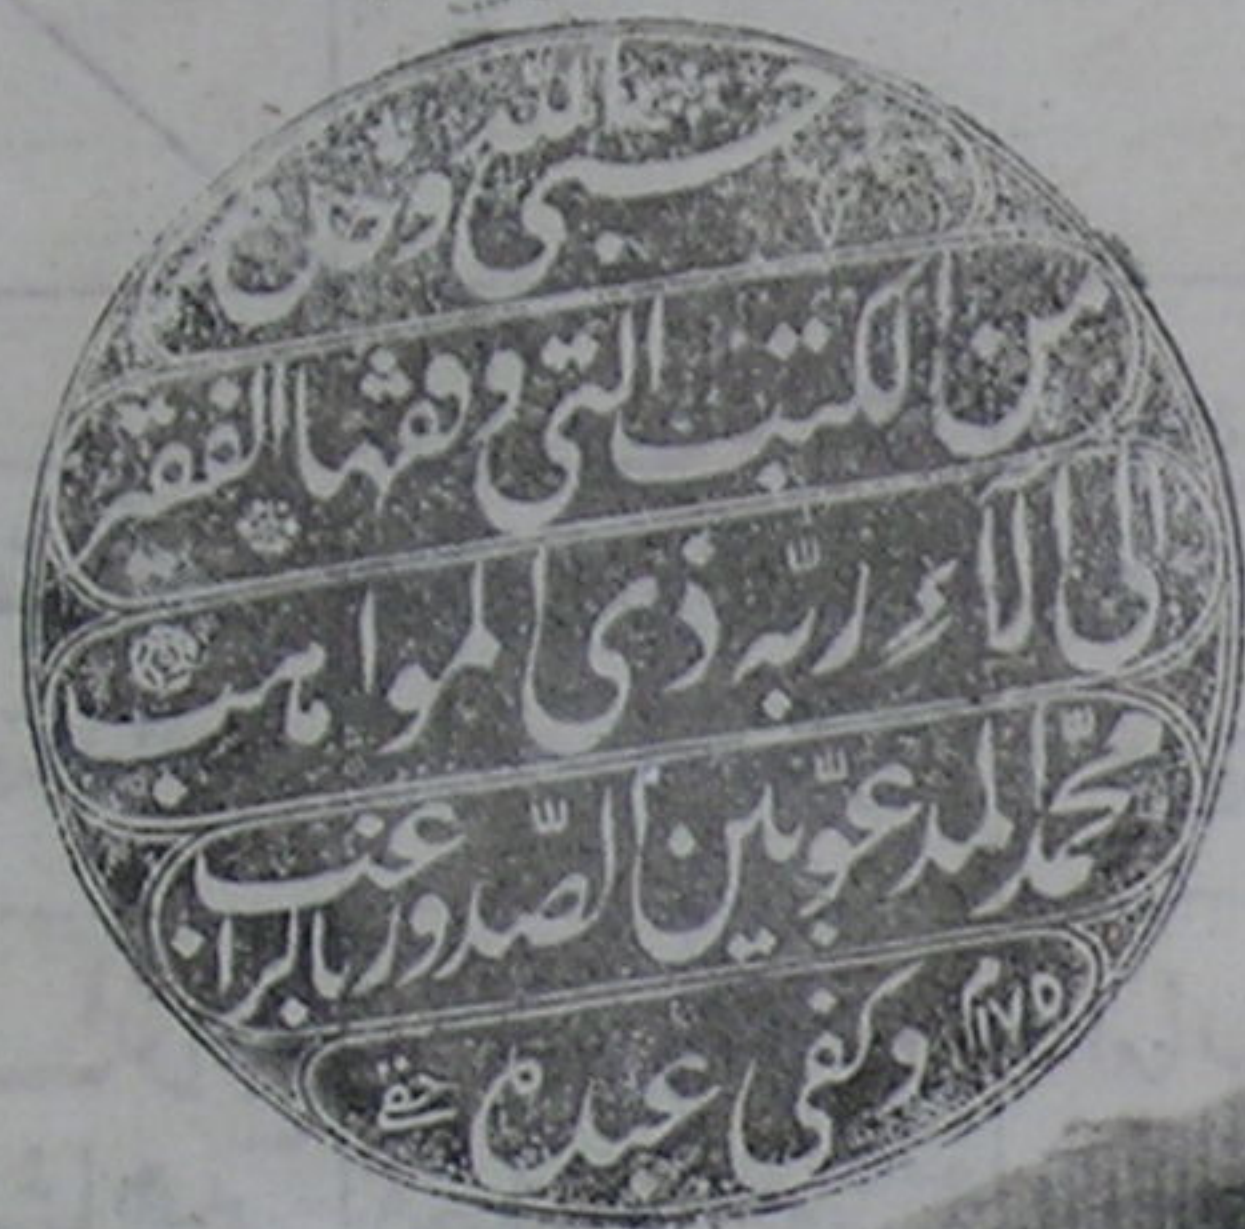 حسبی الله
من الکتب التی وقفها الفقیر
الی آلاء ربّه ذی المواهب
محمّد المدعوّ بین الصّدور بالراغب
وکفی عبده حقی ١١٧٥